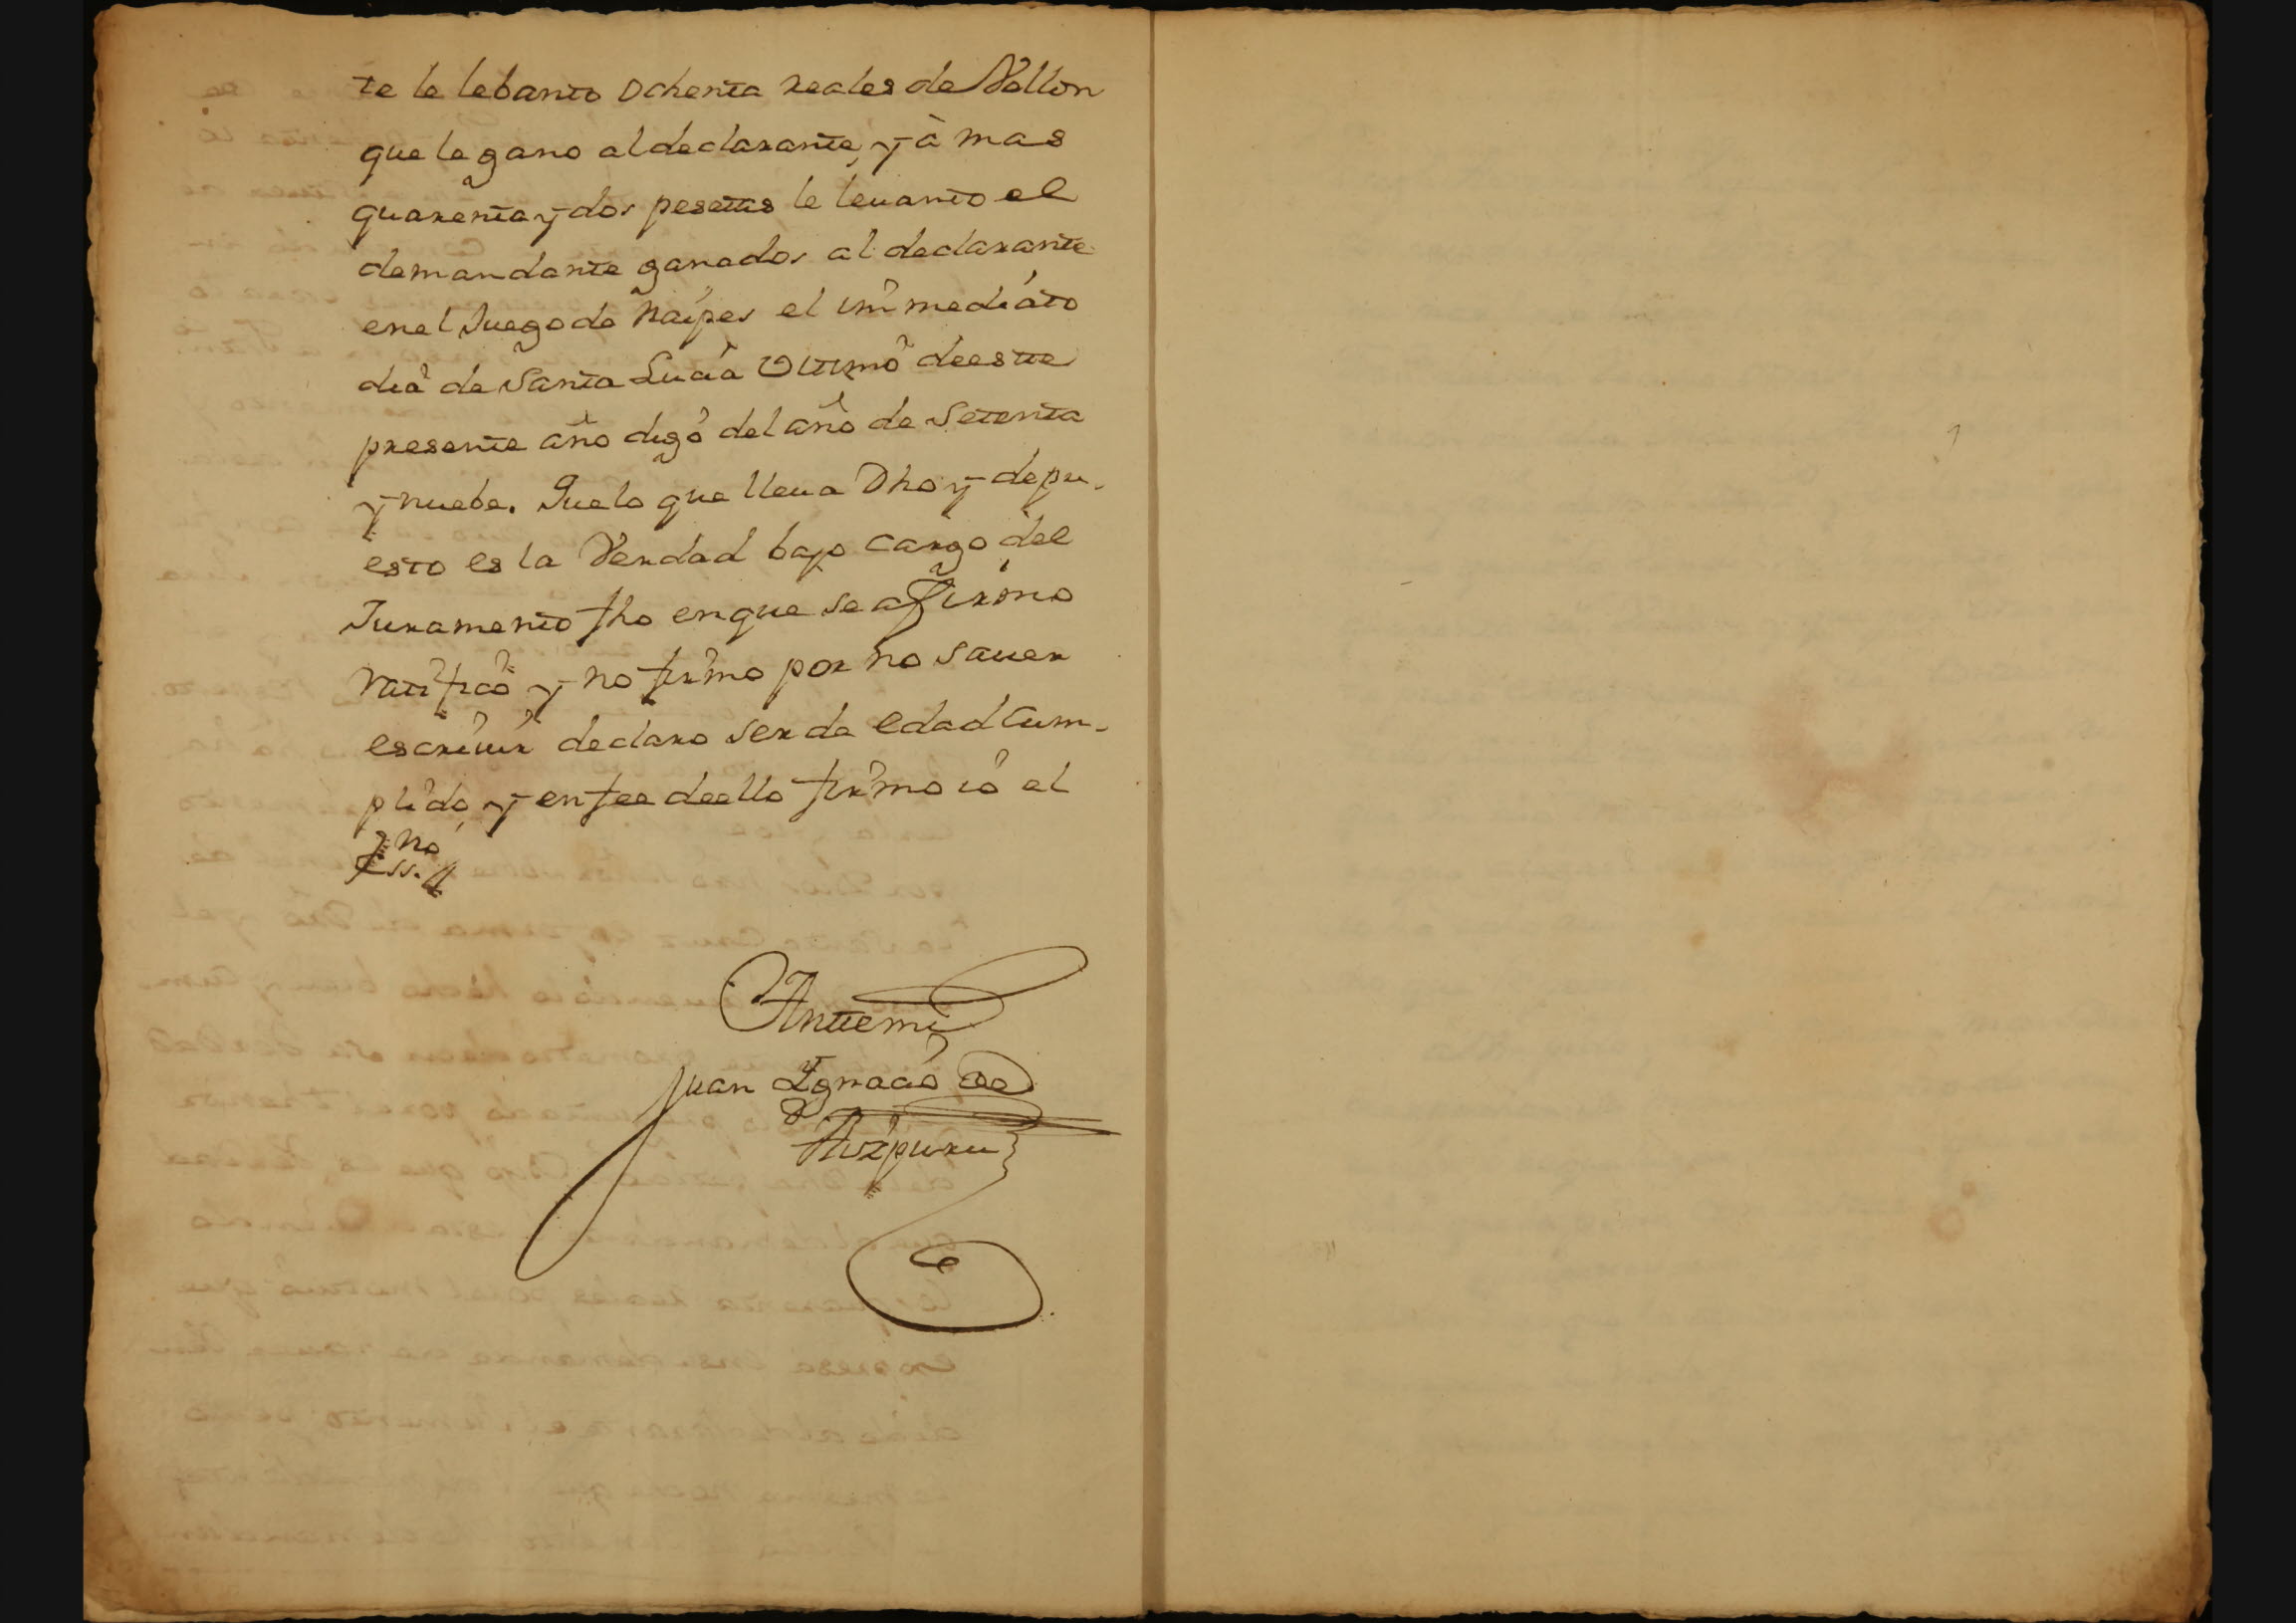 te le lebanto Ochenta reales de Vellon
que le gano al declarante, y à mas
quarenta y dos pesettas le leuanto el
demandante ganados al declarante
en el Juego de Naipes el immediato
dia de Santa Lucia Ultimo de este
presente año digo del año de Setenta
y nuebe. Que lo que lleua Dho y depu-
esto es la Verdad bajo cargo del
Juramento fho en que se affirmo
ratifico y no firmo por no sauer
escriuir declaro ser de edad Cum-
plido, y en fee de ello firmo io el
Essno
Antte mi
Juan Ygnacio de
Aizpuru